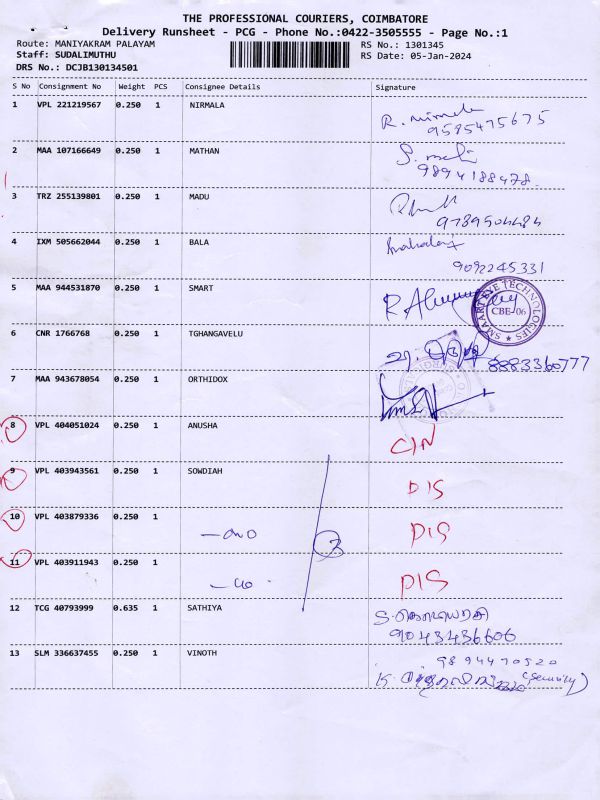 THE PROFESSIONAL COURIERS, COIMBATORE
Delivery Runsheet - PCG - Phone No.:0422-3505555 - Page No.:1
Route: MANIYAKRAM PALAYAM RS No.: 1301345
Staff: SUDALIMUTHU RS Date: 05-Jan-2024
DRS No.: DCJB130134501
S No Consignment No Weight PCS Consignee Details Signature
1 VPL 221219567 0.250 1 NIRMALA R. Nirmala
9585475675
2 MAA 107166649 0.250 1 MATHAN
9894188478
3 TRZ 255139801 0.250 1 MADU
9789504484
4 IXM 505662044 0.250 1 BALA
9092245331
5 MAA 944531870 0.250 1 SMART
SMAART EYE TECHNOLOGIES
CBE-06
6 CNR 1766768 0.250 1 TGHANGAVELU
8883360777
7 MAA 943678054 0.250 1 ORTHIDOX
8 VPL 404051024 0.250 1 ANUSHA CIN
9 VPL 403943561 0.250 1 SOWDIAH DIS
10 VPL 403879336 0.250 1 DIS
11 VPL 403911943 0.250 1 DIS
12 TCG 40793999 0.635 1 SATHIYA
9043436606
13 SLM 336637455 0.250 1 VINOTH 9894470520
(Security)